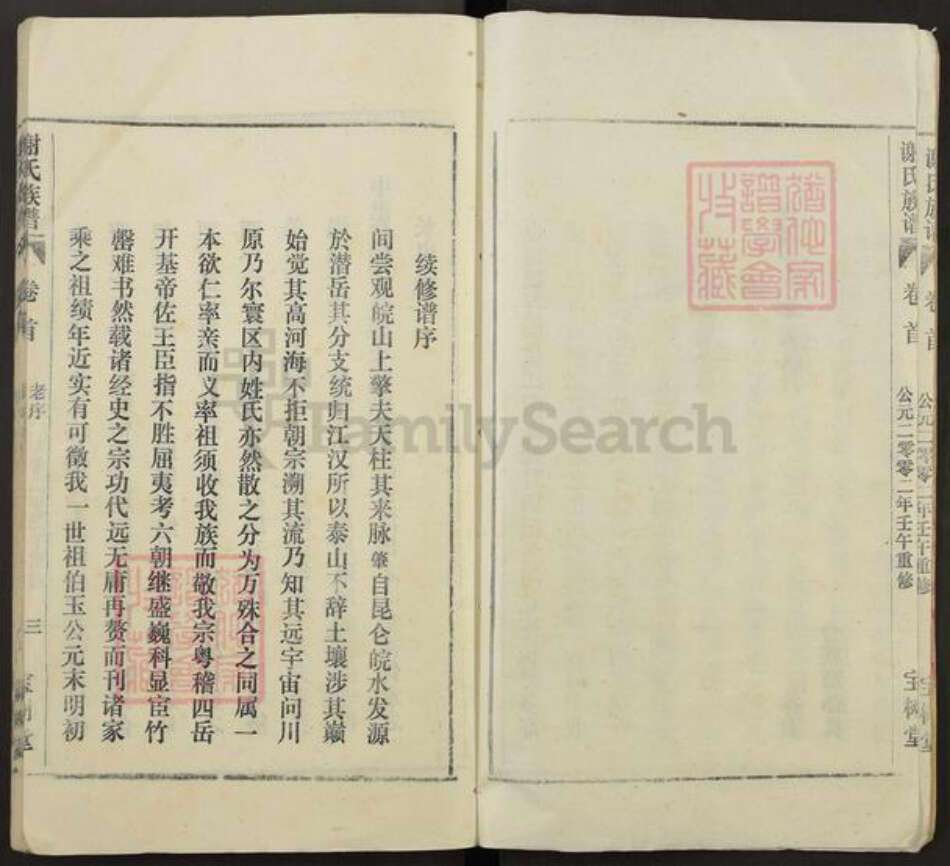 谢氏族谱
卷首
公元二零零二年壬午重修
宝树堂
谢氏族谱
卷首
公元二零零二年壬午重修
宝树堂
谱学会
收藏
续修谱序
间尝观皖山上擎夫天柱其来脉肇自昆仑皖水发源
於潜岳其分支统归江汉所以泰山不辞土壤涉其巅
始觉其高河海不拒朝宗溯其流乃知其远宇宙问川
原乃尔寰区内姓氏亦然散之分为万殊合之同属一
本欲仁率亲而义率祖须收我族而敬我宗粤稽四岳
开基帝佐王臣指不胜屈夷考六朝继盛巍科显宦竹
罄难书然载诸经史之宗功代远无庸再赘而刊诸家
乘之祖绩年近实有可徵我一世祖伯玉公元末明初
谢氏族谱
卷首
老序
三
FamilySearch